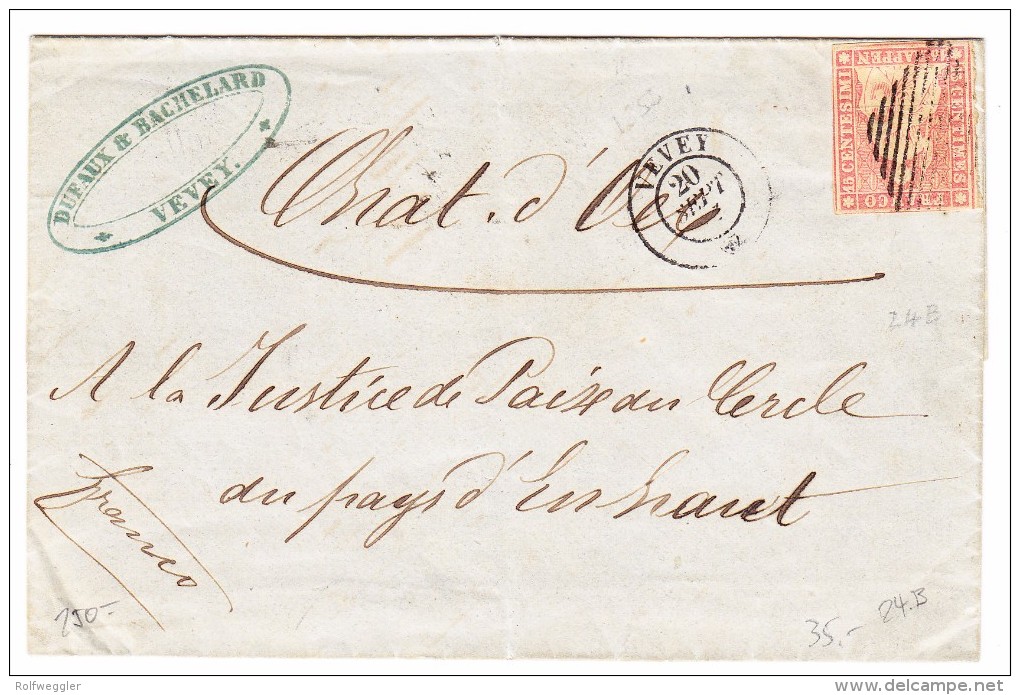 DUFAUX & BACHELARD
VEVEY.
Chat. d'Oex
VEVEY
20
SEPT
15 RAPPEN
15 CENTIMES
FRANCO
15 CENTESIMI
24B
A la Justice de Paix du Cercle
du pays d'Enhaut
franco
250.-
35.-
24.B
Rolfweggler
delcampe.net